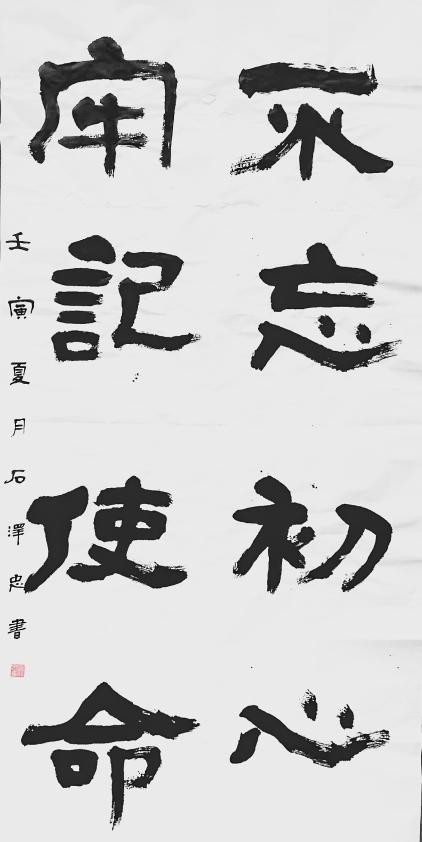 不忘初心
牢記使命
壬寅夏月石澤忠書